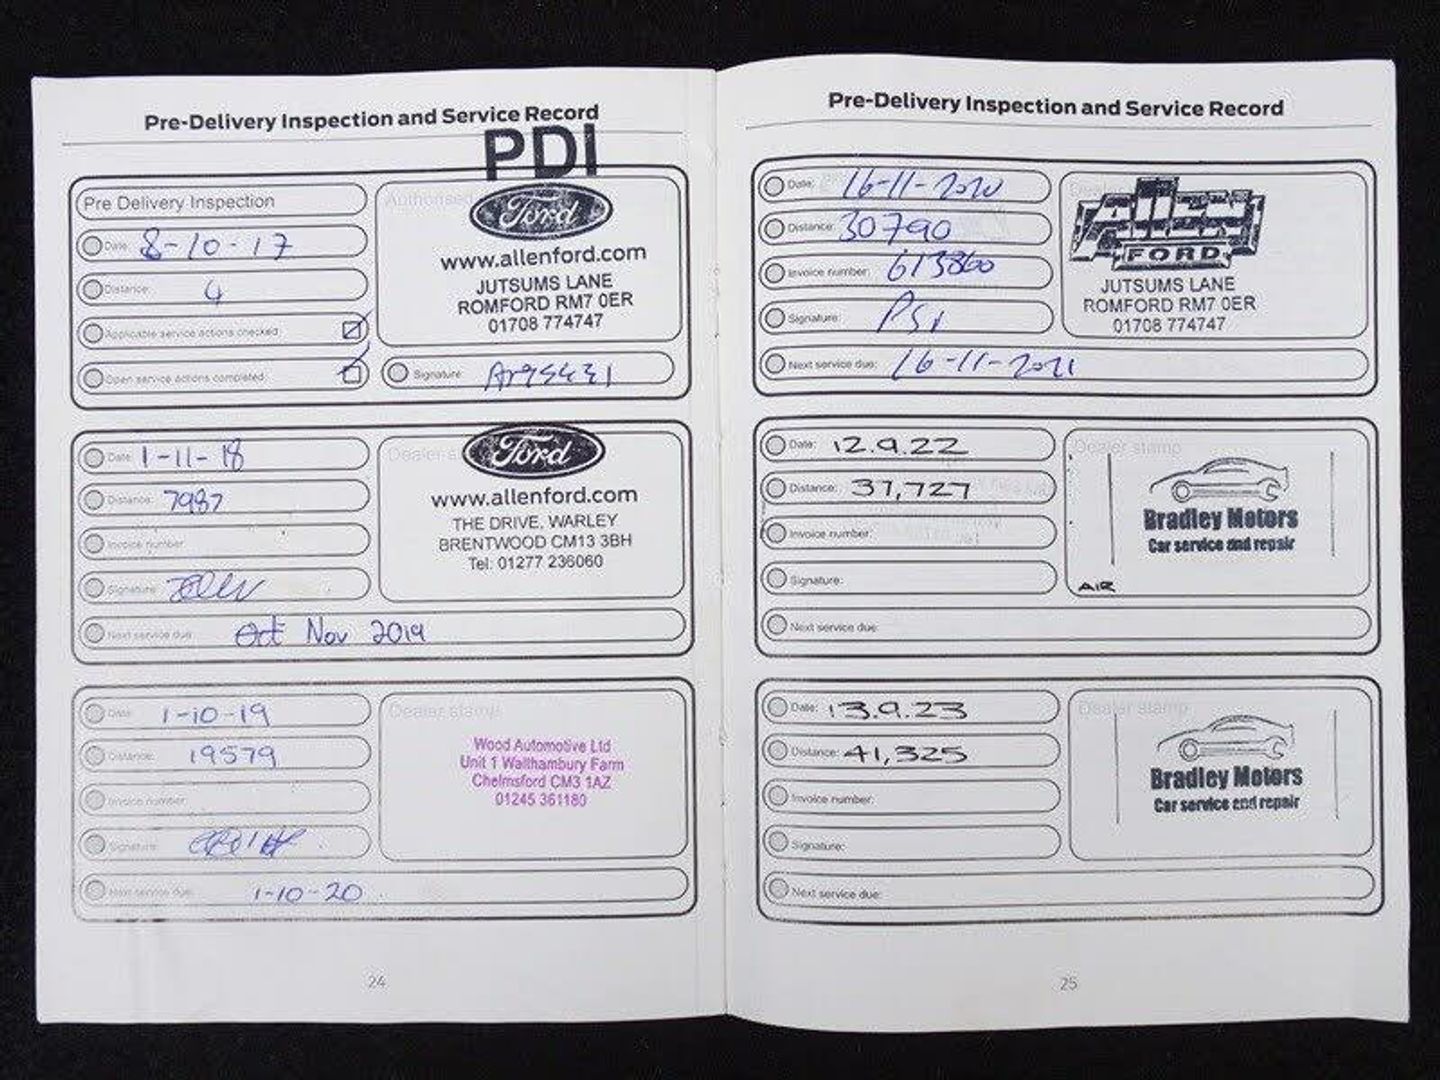 Pre-Delivery Inspection and Service Record
PDI
Pre Delivery Inspection
Authorised
Ford
Date: 8-10-17
www.allenford.com
Distance: 4
JUTSUMS LANE
ROMFORD RM7 0ER
01708 774747
Applicable service actions checked:
Open service actions completed:
Signature:
Date: 1-11-18
Dealer
Ford
Distance: 7987
www.allenford.com
Invoice number:
THE DRIVE, WARLEY
BRENTWOOD CM13 3BH
Tel: 01277 236060
Signature:
Next service due: Oct Nov 2019
Date: 1-10-19
Dealer stamp
Distance: 19579
Wood Automotive Ltd
Unit 1 Walthambury Farm
Chelmsford CM3 1AZ
01245 361180
Invoice number:
Signature:
Next service due: 1-10-20
24
Pre-Delivery Inspection and Service Record
Date: 16-11-2020
Distance: 30790
FORD
Invoice number: 613860
JUTSUMS LANE
ROMFORD RM7 0ER
01708 774747
Signature:
Next service due: 16-11-2021
Date: 12.9.22
Dealer stamp
Distance: 37,727
Bradley Motors
Car service and repair
Invoice number:
Signature:
AIR
Next service due:
Date: 13.9.23
Dealer stamp
Distance: 41,325
Bradley Motors
Car service and repair
Invoice number:
Signature:
Next service due:
25